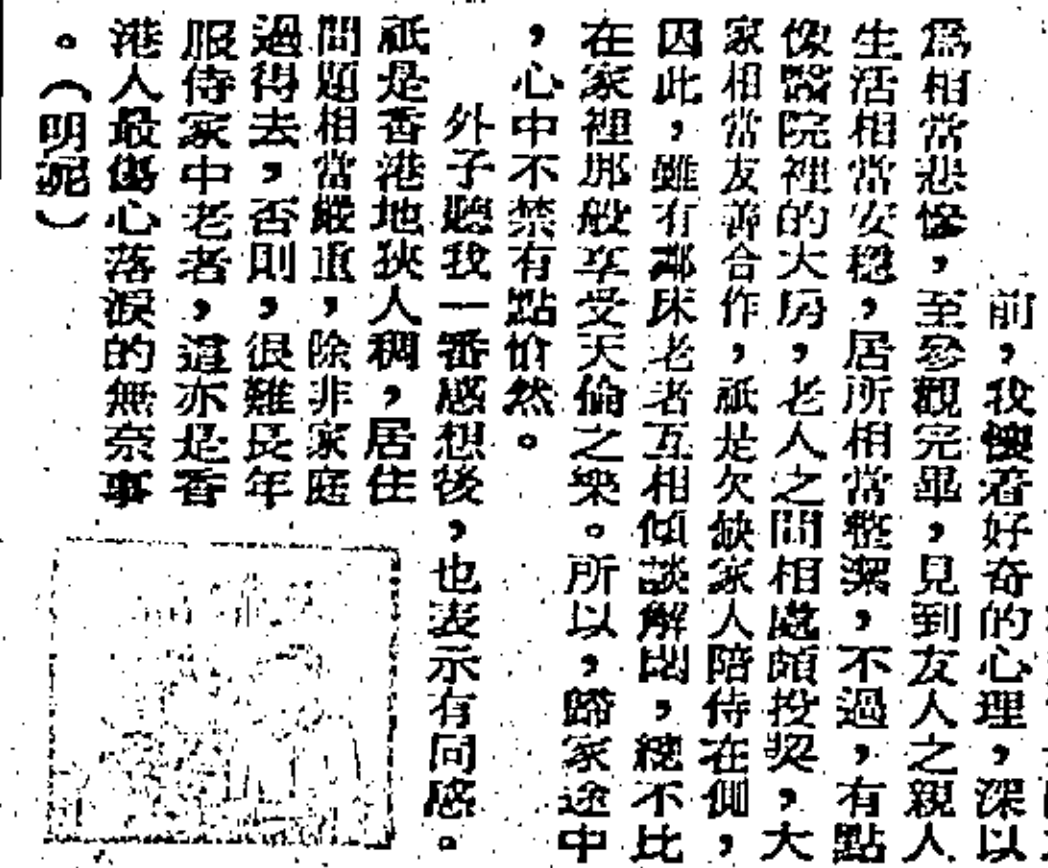 前，我懷着好奇的心理，深以
爲相當悲慘，至參觀完畢，見到友人之親人
生活相當安穏，居所相當整潔，不過，有點
像醫院裡的大房，老人之間相處頗投契，大
家相當友善合作，祇是欠缺家人陪侍在側，
因此，雖有鄰床老者互相傾談解悶，總不比
在家裡那般享受天倫之樂。所以，歸家途中
，心中不禁有點愴然。
外子聽我一番感想後，也表示有同感。
祇是香港地狹人稠，居住
問題相當嚴重，除非家庭
過得去，否則，很難長年
服侍家中老者，這亦是香
港人最傷心落淚的無奈事
。（明妮）